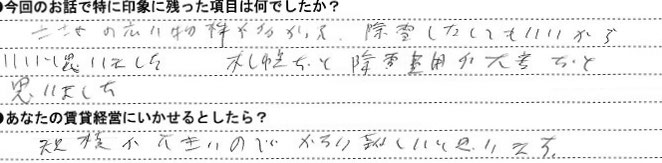 ●今回のお話で特に印象に残った項目は何でしたか？
の広い物件が多かった、除雪しなくてもいいから
いいと思いました　札幌だと除雪費用が大きだと
思いました
●あなたの賃貸経営にいかせるとしたら？
規模が大きいのでかなり難しいと思います。